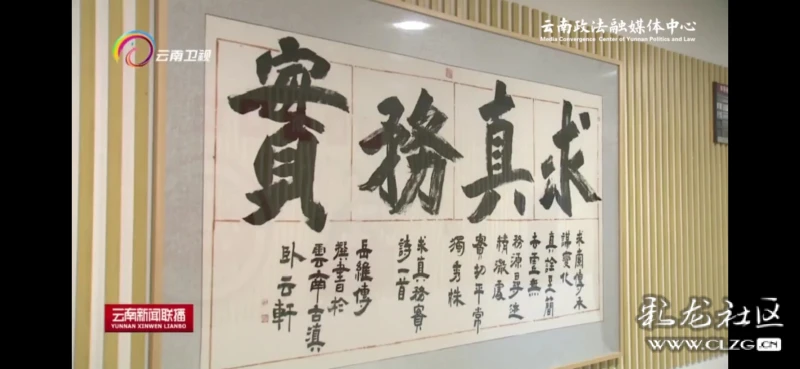 云南卫视
云南政法融媒体中心
Media Convergence Center of Yunnan Politics and Law
求真務實
謀變化
真詮呈簡
去虛無
精微處
平常
獨秀株
求真務實
詩一首
岳維傳
書於
雲南古滇
卧云軒
云南新闻联播
YUNNAN XINWEN LIANBO
彩龙社区
WWW.CLZG.CN